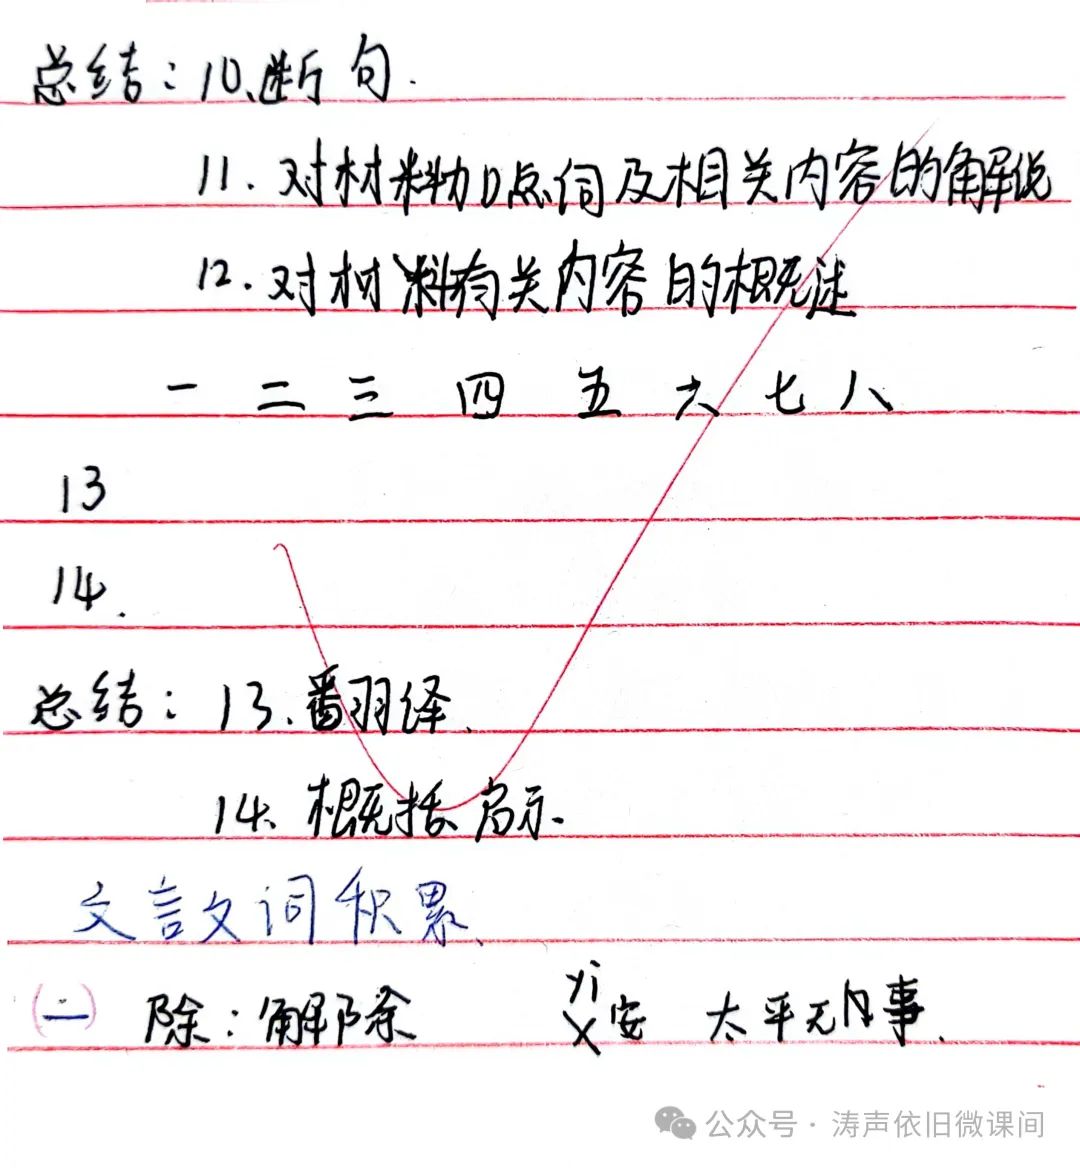 总结：10、断句.
11. 对材料加点词及相关内容的解说
12. 对材料有关内容的概述
一 二 三 四 五 六 七 八
13
14.
总结：13.翻译.
14. 概括启示.
文言文词积累、
(二) 除：解除 yì 乂安 太平无事.
公众号·涛声依旧微课间